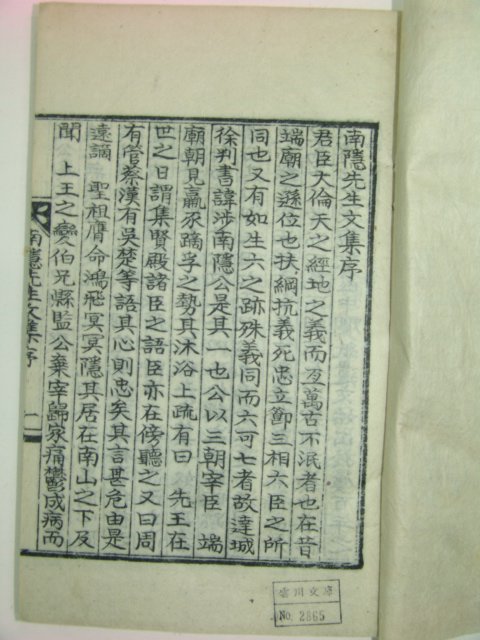 南隱先生文集序
君臣大倫天之經地之義而亙萬古不泯者也在昔
端廟之遜位也扶綱抗義死忠立鄧三相六臣之所
同也又有如生六之跡殊義同而六可七者故達城
徐判書諱涉南隱公是其一也公以三朝宰臣 端
廟朝見羸豕蹢孚之勢其沐浴上疏有曰 先王在
世之日謂集賢殿諸臣之語臣亦在傍聽之又曰周
有管蔡漢有吳楚等語其心則忠矣其言甚危由是
遠謫 聖祖膺命鴻飛冥冥隱其居在南山之下及
聞 上王之變伯兄縣監公棄宰歸家痛鬱成病而
南隱先生文集序 一
雲川文庫
No. 2865